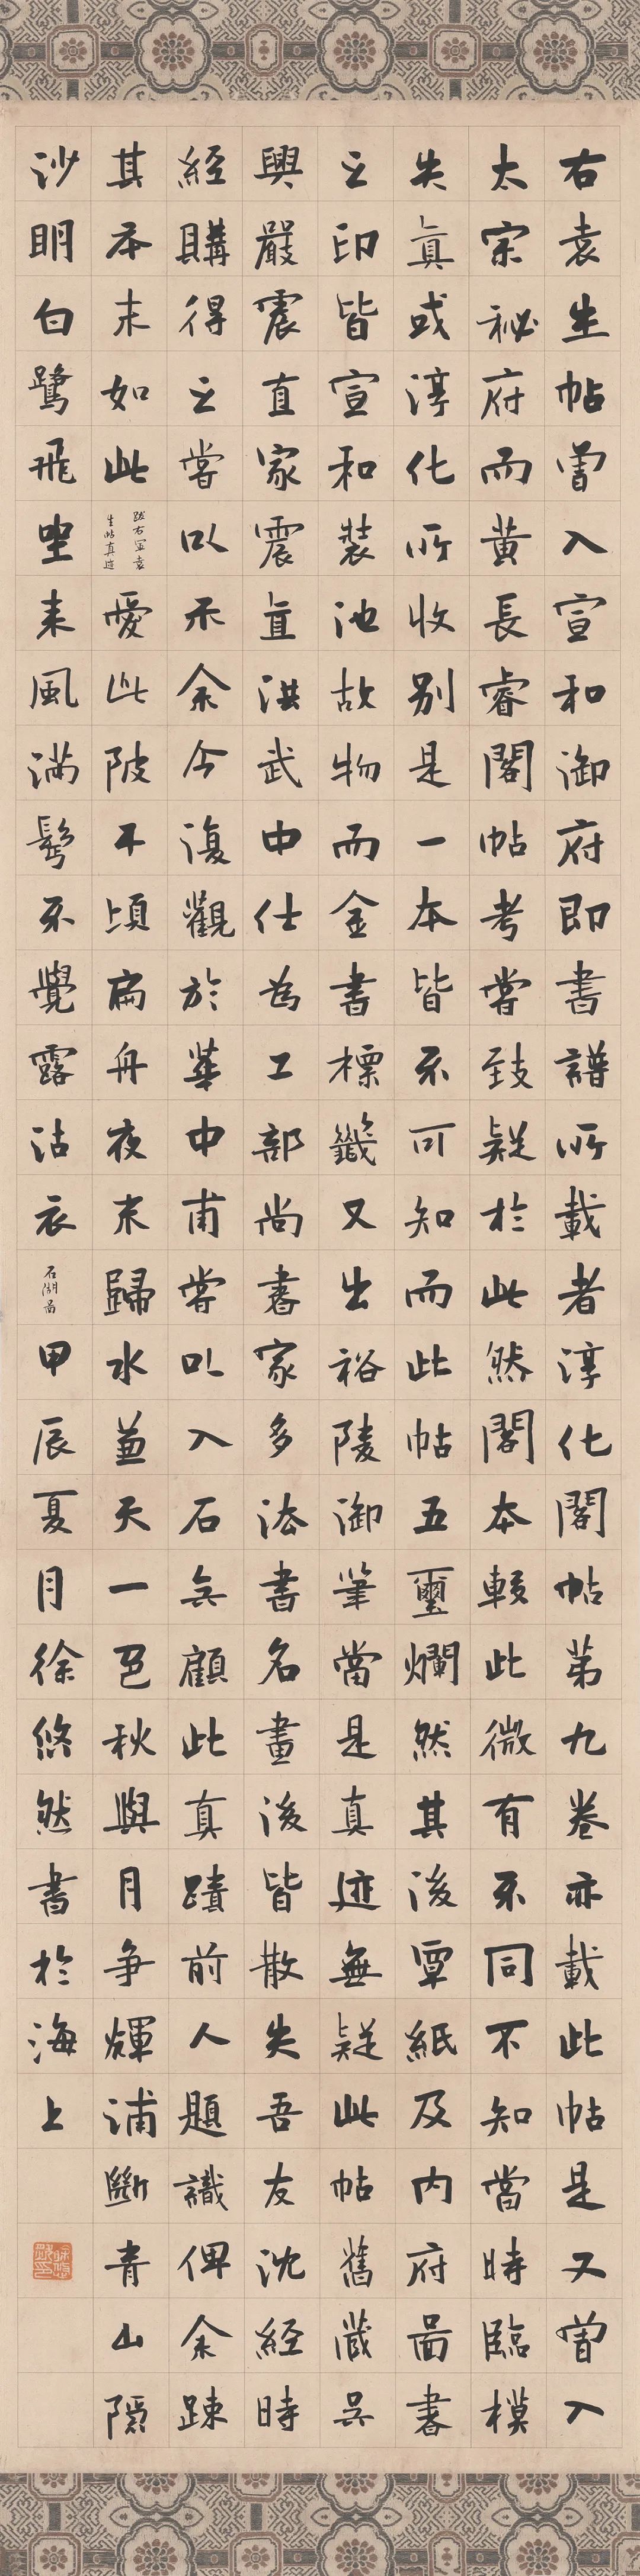 右袁生帖曾入宣和御府即書譜所載者淳化閣帖第九卷亦載此帖是又曾入
太宗祕府而黃長睿閣帖考嘗致疑於此然閣本較此微有不同不知當時臨模
失真或淳化所收別是一本皆不可知而此帖五璽爛然其後覃紙及內府圖書
之印皆宣和裝池故物而金書標籤又出裕陵御筆當是真迹無疑此帖舊藏吳
興嚴震直家震直洪武中仕為工部尚書家多法書名畫後皆散失吾友沈經時
經購得之嘗以示余今復觀於華中甫嘗以入石矣顧此真蹟前人題識俾余疎
其本末如此跋右軍袁生帖真迹愛此陂千頃扁舟夜未歸水兼天一色秋與月爭輝浦斷青山隱
沙明白鷺飛坐來風滿鬢不覺露沾衣石湖圖甲辰夏月徐悠然書於海上